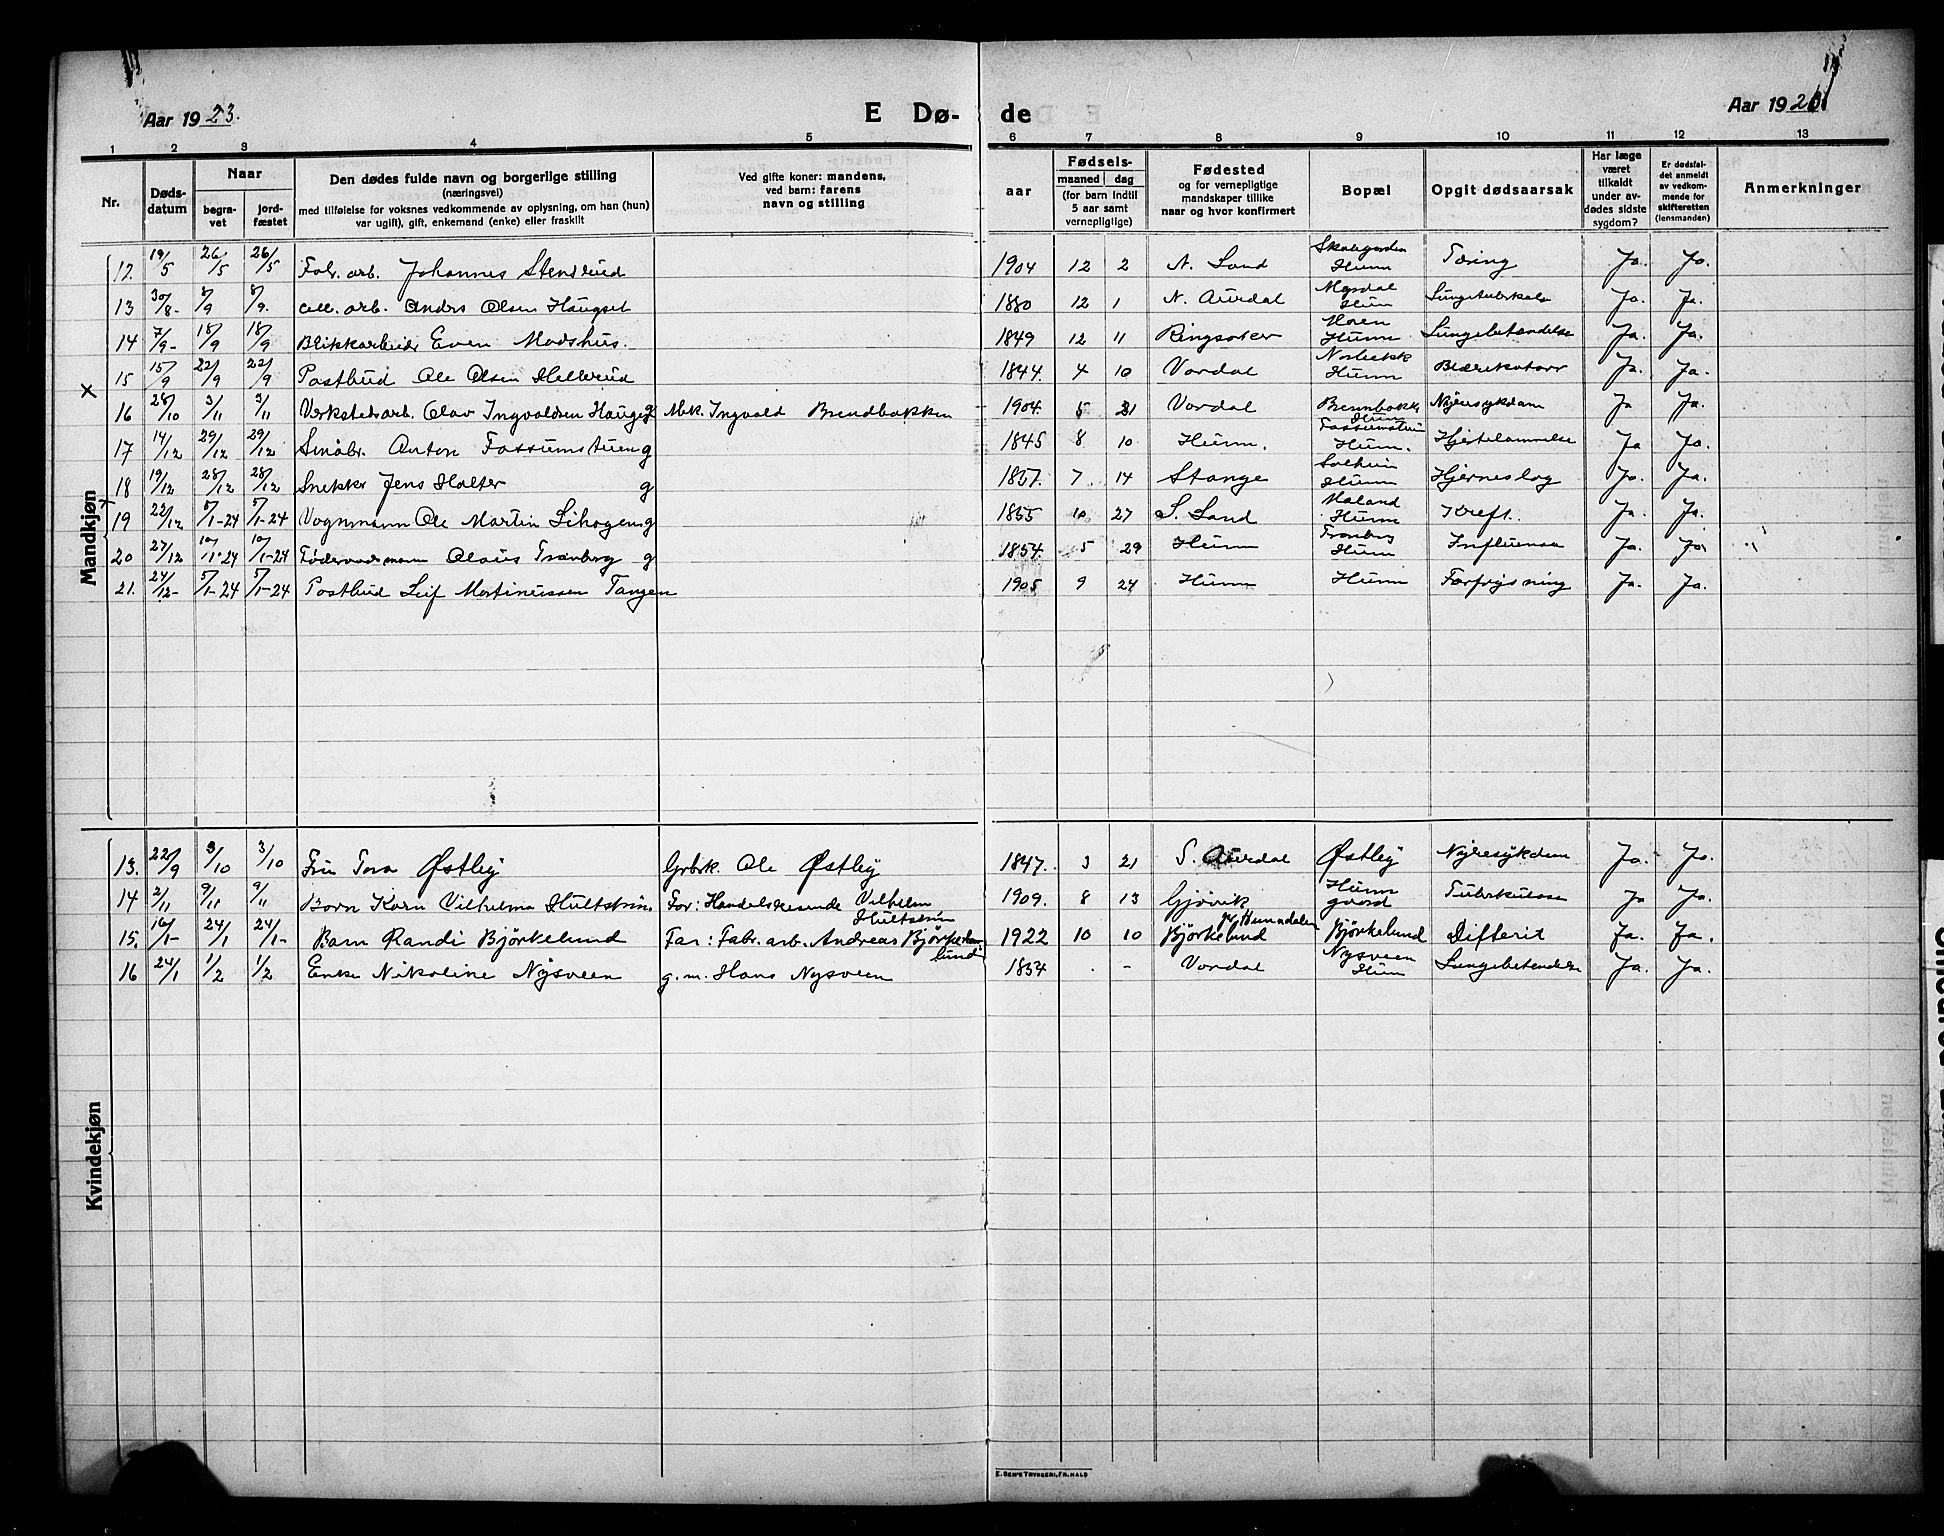 Aar 1923.
E Dø- de
Aar 192
1 2 3 4 5 6 7 8 9 10 11 12 13
Nr.
Dødsdatum
Naar
begravet
jordfæstet
Den dødes fulde navn og borgerlige stilling
(næringsvei)
med tilføielse for voksnes vedkommende av oplysning, om han (hun)
var ugift), gift, enkemand (enke) eller fraskilt
Ved gifte koner: mandens,
ved barn: farens
navn og stilling
aar
Fødsels-
maaned dag
(for barn indtil
5 aar samt
vernepligtige)
Fødested
og for vernepligtige
mandskaper tillike
naar og hvor konfirmert
Bopæl
Opgit dødsaarsak
Har læge
været
tilkaldt
under av-
dødes sidste
sygdom?
Er dødsfal-
det anmeldt
av vedkom-
mende for
skifteretten
(lensmanden)
Anmerkninger
Mandkjøn
12. 19/5 26/5 26/5 Fabr. arb. Johannes Stensrud 1904 12 2 N. Land Hunn Tæring Ja. Ja.
13 30/8- 8/9 8/9. cell. arb. Andrs Olsen Haugset 1880 12 1 N. Aurdal Hunn Ja. Ja.
14 7/9- 18/9 18/9 Blikkarbeider Even Madshus. 1849 12 11 Ringsaker Hunn Lungebetændelse Ja. Ja.
15 15/9 22/9 22/9 Postbud Ole Olsen Hellerud 1844. 4 10 Vardal Norbekk Hunn Blærekatarr Ja. Ja.
×
16 28/10 3/11 3/11 Verkstedsarb. Olav Ingvaldsen Hauge g Mek. Ingvald Brendbakken 1904. 5 21 Vardal Hunn Nyresykdom Ja Ja.
17 14/12 29/12 29/12 Småbr. Anton Fossumstuen g 1845 8 10 Hunn. Fossumstuen Hunn. Hjertelammelse Ja Ja.
18 19/12 28/12 28/12 Snekker Jens Holter g 1857. 7 14 Stange Solheim Hunn Hjerneslag Ja. Ja.
19 22/12 5/1-24 5/1-24 Vognmann Ole Martin Lihagen g 1855 10 27 S. Land Hunn Kreft. Ja. Ja.
20 27/12 10/1-24 10/1-24 Føderaadsmann Olaus Tranberg g 1854. 5 29 Hunn Tranberg Hunn Influensa Ja. Ja
21. 24/12- 5/1-24 5/1-24 Postbud Leif Martinussen Tangen 1905 9 24 Hunn Hunn Forfrysning Ja. Ja.
Kvindekjøn
13. 22/9 3/10 3/10 Fru Tora Østley Grbrk. Ole Østley 1847. 3 21 S. Aurdal Østley Nyresykdom Ja. Ja.
14 2/11 9/11 9/11 Barn Karn Vilhelma Hultstrøm. Far: Handelsreisende Vilhelm Hultstrøm 1909. 8 13 Gjøvik Hunn gaard Tuberkulose Ja Ja.
15. 16/1- 24/1 24/1- Barn Randi Björkelund Far: Fabr. arb. Andreas Björke- lund 1922 10 10 Björkelund Björkelund Difterit Ja. Ja.
16 24/1 1/2 1/2 Enke Nikoline Nysveen g. m. Hans Nysveen 1834 . - Vardal Nysveen Hunn Lungebetendelse Ja. Ja.